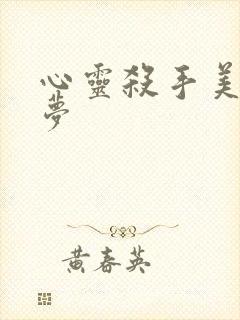 心靈殺手美
夢
黃春英